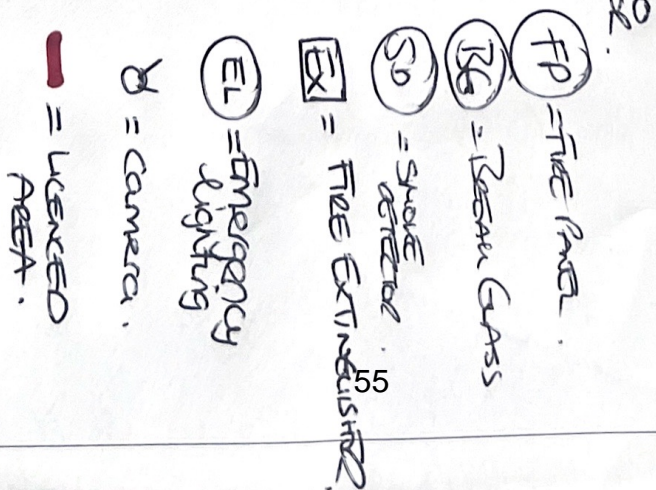 FP = FIRE PANEL.
BG = BREAK GLASS
SD = SMOKE
DETECTOR.
EX = FIRE EXTINGUISHER
EL = Emergency
lighting
= Camera.
= LICENCED
AREA.
55